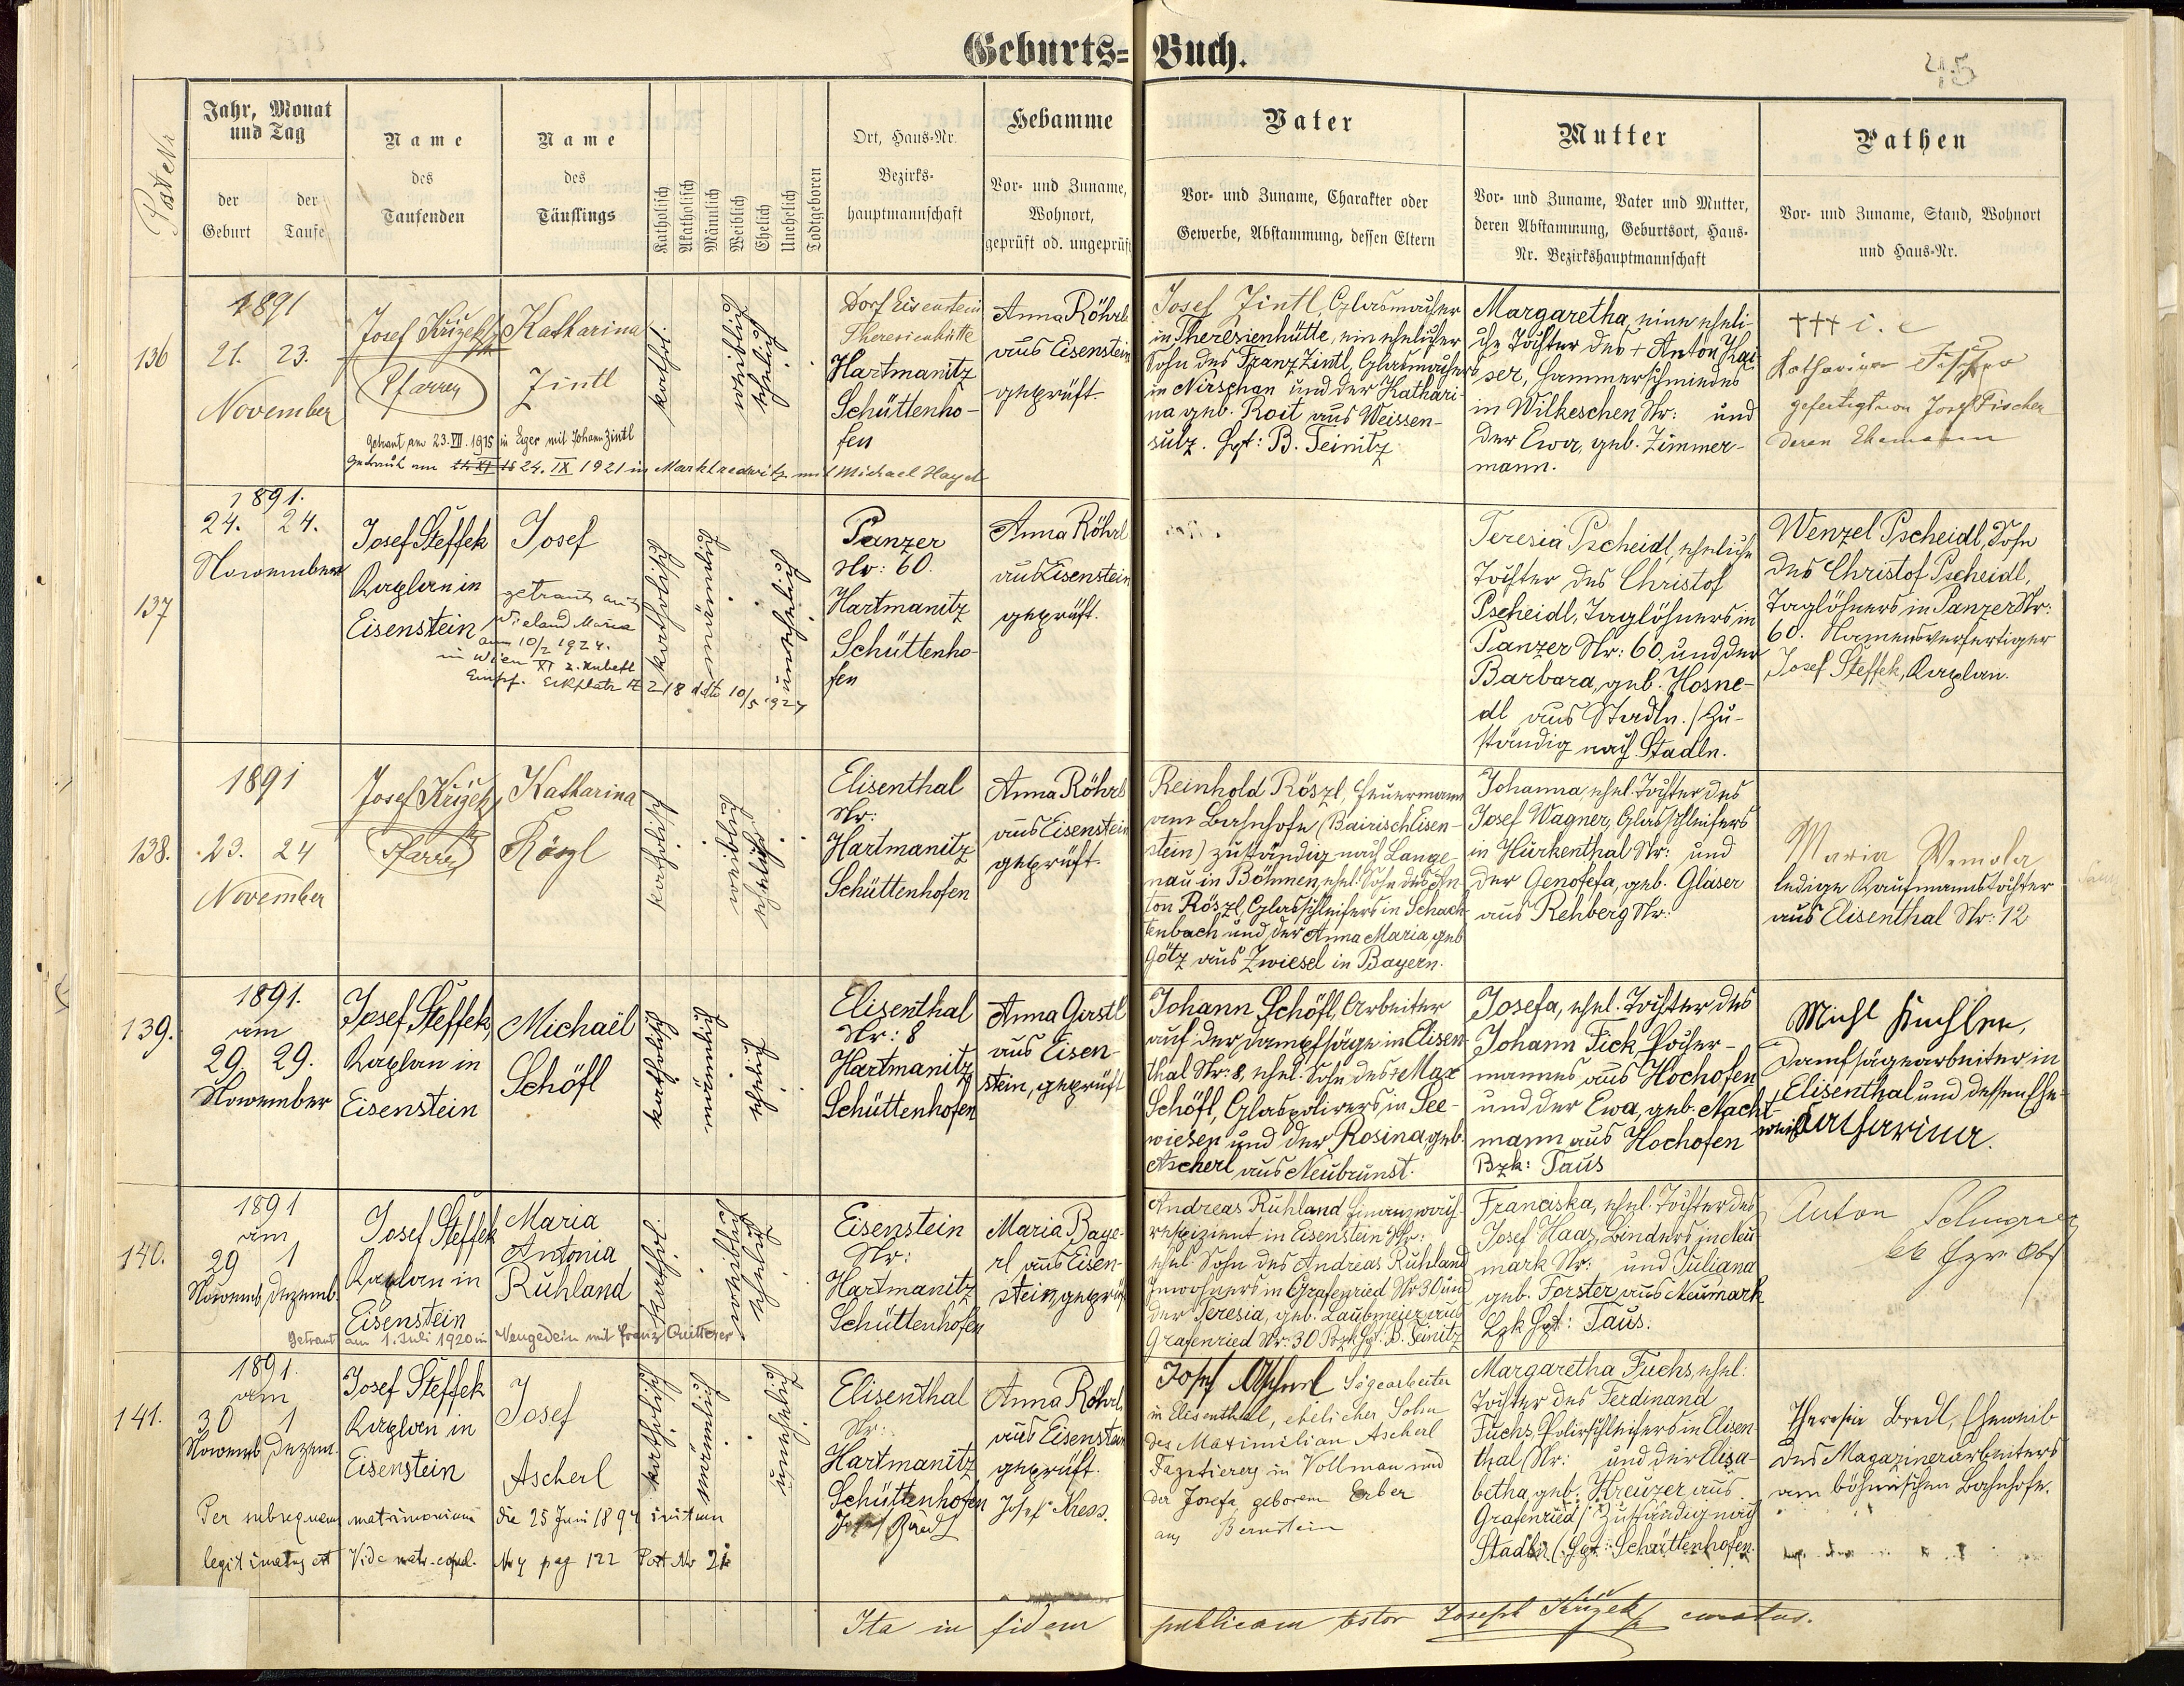 Geburts=Buch.
45
Post Nr
Jahr, Monat
und Tag
der
Geburt
der
Taufe
Name
des
Taufenden
Name
des
Täuflings
Katholisch
Akatholisch
Männlich
Weiblich
Ehelich
Unehelich
Todtgeboren
Ort, Haus-Nr.
Bezirks-
hauptmannschaft
Hebamme
Vor- und Zuname,
Wohnort,
geprüft od. ungeprüft
Vater
Vor- und Zuname, Charakter oder
Gewerbe, Abstammung, dessen Eltern
Mutter
Vor- und Zuname, Vater und Mutter,
deren Abstammung, Geburtsort, Haus-
Nr. Bezirkshauptmannschaft
Pathen
Vor- und Zuname, Stand, Wohnort
und Haus-Nr.
136
1891
21. 23.
November
Josef Križek
Pfarrer
Katharina
Zintl
kathol.
weiblich
ehelich
Dorf Eisenstein
Theresienhütte
Hartmanitz
Schüttenho-
fen
Anna Röhrl
aus Eisenstein
geprüft.
Josef Zintl, Glasmacher
in Theresienhütte, ein ehelicher
Sohn des Franz Zintl, Glasmachers
in Nirschan und der Kathari-
na geb. Roit aus Weissen-
sulz. Hpt: B. Teinitz
Margaretha, eine eheli-
che Tochter des + Anton Kai-
ser, Hammerschmiedes
in Wilkeschen Nr: und
der Ewa, geb. Zimmer-
mann.
+++ i. e
Katharina Fischer
gefertigt von Josef Fischer
deren Ehemann
Getraut am 23. VII. 1915 in Eger mit Johann Zintl
Getraut am 24. IX 1921 in Marktredwitz mit Michael Hayd
137
1891.
24. 24.
November
Josef Steffek
Kaplan in
Eisenstein
Josef
getraut mit
Wieland Maria
am 10/2 1924.
in Wien XI
218 dto 10/5 1927
katholisch
männlich
unehelich
Panzer
Nr: 60.
Hartmanitz
Schüttenho-
fen
Anna Röhrl
aus Eisenstein
geprüft.
Teresia Pscheidl, eheliche
Tochter des Christof
Pscheidl, Taglöhners in
Panzer Nr: 60. und der
Barbara, geb. Hosne-
dl aus Stadln. / Zu-
ständig nach Stadln.
Wenzel Pscheidl, Sohn
des Christof Pscheidl,
Taglöhners in Panzer Nr:
60. Namensverfertiger
Josef Steffek, Kaplan.
138.
1891
23. 24
November
Josef Križek
Pfarrer
Katharina
Röszl
katholisch
weiblich
ehelich
Elisenthal
Nr:
Hartmanitz
Schüttenhofen
Anna Röhrl
aus Eisenstein
geprüft.
Reinhold Röszl, Feuermann
am Bahnhofe (Bairisch Eisen-
stein) zuständig nach Lange-
nau in Böhmen, ehel. Sohn des An-
ton Röszl, Glasschleifers in Schach-
tenbach und der Anna Maria, geb.
Götz aus Zwiesel in Bayern.
Johanna, ehel. Tochter des
Josef Wagner, Glasschleifers
in Hurkenthal Nr: und
der Genofefa, geb. Gläser
aus Rehberg Nr:
Maria Wemola
ledige Kaufmannstochter
aus Elisenthal Nr: 12
139.
1891.
am
29. 29.
November
Josef Steffek,
Kaplan in
Eisenstein
Michael
Schöfl
katholisch
männlich
ehelich
Elisenthal
Nr: 8
Hartmanitz
Schüttenhofen
Anna Gerstl
aus Eisen-
stein, geprüft
Johann Schöfl, Arbeiter
auf der Dampfsäge in Elisen-
thal Nr: 8, ehel. Sohn des + Max
Schöfl, Glaspolirers in See-
wiesen und der Rosina, geb.
Ascherl aus Neubrunst.
Josefa, ehel. Tochter des
Johann Fick, Pocher-
mannes aus Hochofen
und der Ewa, geb. Nacht-
mann aus Hochofen
Bzk: Taus
Michl Kuchler,
Dampfsägearbeiter in
Elisenthal und dessen Ehe-
weib Katharina.
140.
1891
am
29 1
Novemb. Dezemb.
Josef Steffek
Kaplan in
Eisenstein
Maria
Antonia
Ruhland
kathol.
weiblich
ehelich
Eisenstein
Nr:
Hartmanitz
Schüttenhofen
Maria Baye-
rl aus Eisen-
stein, geprüft
Andreas Ruhland Finanzwach-
respizient in Eisenstein Nr:
ehel. Sohn des Andreas Ruhland
Inwohners in Grafenried Nr 30 und
der Teresia, geb. Laubmeier aus
Grafenried Nr: 30 Bzk Hpt. B. Teinitz
Franciska, ehel. Tochter des
Josef Haas, Binders in Neu-
mark Nr: und Juliana
geb. Forster aus Neumark
Hpt: Taus.
Anton
Getraut am 1. Juli 1920 in Neugedein mit Franz Quitterer
141.
1891.
am
30 1
Novemb. Dezem.
Josef Steffek
Kaplan in
Eisenstein
Josef
Ascherl
katholisch
männlich
unehelich
Elisenthal
Nr:
Hartmanitz
Schüttenhofen
Anna Röhrl
aus Eisenstein
geprüft.
Josef Kress.
Josef Ascherl Sägearbeiter
in Elisenthal, ehelicher Sohn
des Maximilian Ascherl
in Vollmau und
der Josefa geborene Erber
aus Bernstein
Margaretha Fuchs, ehel.
Tochter des Ferdinand
Fuchs, Polirschleifers in Elisen-
thal Nr: und der Elisa-
betha, geb. Kreuzer aus
Grafenried / Zuständig nach
Stadln (Hpt: Schüttenhofen.
Theresia Bredl, Eheweib
des Magazinerarbeiters
am böhmischen Bahnhofe.
Per subsequens matrimonium die 25 Juni 1894 initum
legitimatus est Vide matr. copul. pag 122 Post Nr 21
Ita in fidem publicam testor Joseph Križek curatus.